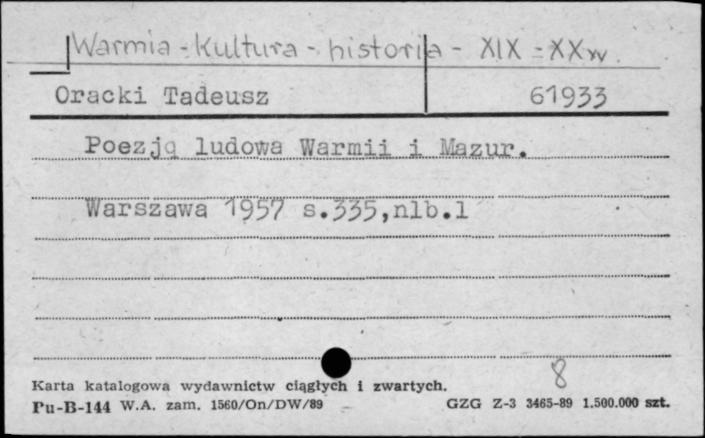 Warmia - kultura - historia - XIX - XX w.
Oracki Tadeusz 61933
Poezja ludowa Warmii i Mazur.
Warszawa 1957 s.335,nlb.1
8
Karta katalogowa wydawnictw ciągłych i zwartych.
Pu-B-144 W.A. zam. 1560/On/DW/89 GZG Z-3 3465-89 1.500.000 szt.